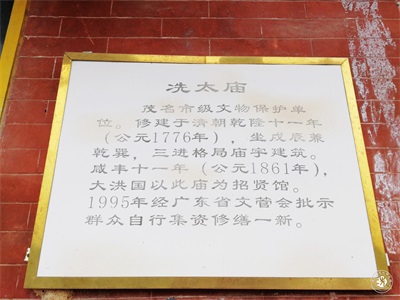 冼太庙
茂名市级文物保护单
位。修建于清朝乾隆十一年
（公元1776年），坐戌辰兼
乾巽，三进格局庙宇建筑。
咸丰十一年（公元1861年），
大洪国以此庙为招贤馆。
1995年经广东省文管会批示
群众自行集资修缮一新。